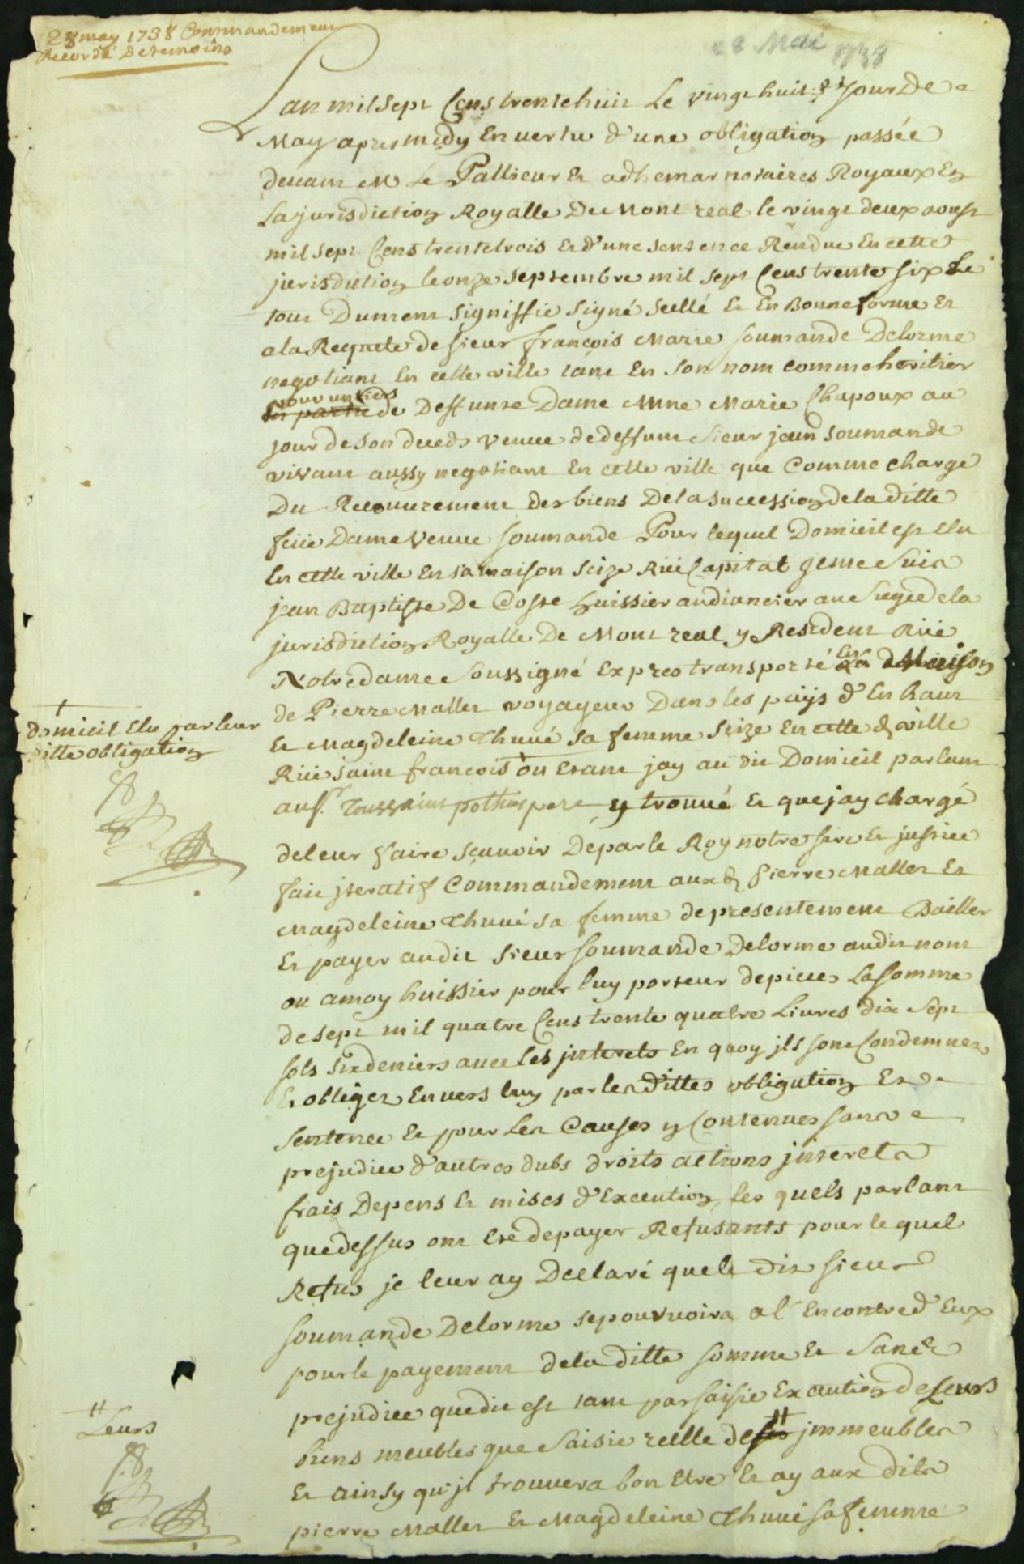 28 may 1738 Commandement
Recordé De temoins
28 Mai 1738
Lan mil sept Cens trente huit Le vingt huit.e Jour De
May apres midy En vertu d'une obligation passée
devant Me Le Pallieur Et adhemar notaires Royaux En
La jurisdiction Royalle De Mont real le vingt deux aoust
mil sept Cens trente trois Et d'une sentence Rendue En cette
jurisdiction le onze septembre mil sept Cens trente six Le
tout Dument signiffie signé scellé Et En Bonne forme Et
a la Requete de sieur francois Marie soumande Delorme
negotiant En cette ville tant En son nom comme heritier
pour un tiers
en partie de Deffunte Dame Anne Marie Chapoux au
jour de son deceds veuve de deffunt sieur jean soumande
vivant aussy negotiant En cette ville que Comme charge
Du Recouvrement des biens De la succession de la ditte
feüe Dame veuve soumande Pour lequel Domicil est Elu
En cette ville En sa maison scize Rüe Capital je me suis
jean Baptiste De Coste huissier audiancier au siege de la
jurisdiction Royalle De Mont real y Resident Rüe
Notre dame Soussigné Expres transporté En la Maison
de Pierre Mallet voyageur Dans les païs d'En haut
Et Magdeleine Thuné sa femme scize En cette d. ville
Rüe saint francois ou Etant jay au dit Domicil parlant
domicil Elu par leur
ditte obligation
au sr. Toussaint pothier pere y trouvé Et que jay chargé
de leur faire sçavoir De par le Roy notre sire Et justice
fait jteratif Commandement aux d. Pierre Mallet Et
Magdeleine Thuné sa femme de presentement Bailler
Et payer audit sieur soumande Delorme audit nom
ou a moy huissier pour luy porteur de pieces La somme
de sept mil quatre Cens trente quatre Livres dix sept
sols six deniers avec les jnterets En quoy jls sont Condemnez
Et obligez Envers luy par les dittes obligation Et
sentence Et pour les Causes y Contenues sans
prejudice d'autres dubs droits actions jnterets
frais Depens Et mises d'Execution, les quels parlant
que dessus ont Eté de payer Refusants pour le quel
Refus je leur ay Declaré que le dit sieur
soumande Delorme se pourvoira a l'Encontre d'Eux
pour le payement de la ditte somme Et sans
prejudice que dit est tant par saisie Execution de Leurs
biens meubles que saisie reelle de ses jmmeubles
Leurs
Et ainsy qu'jl trouvera bon Etre Et ay aux dits
pierre Mallet Et Magdeleine Thuné sa femme